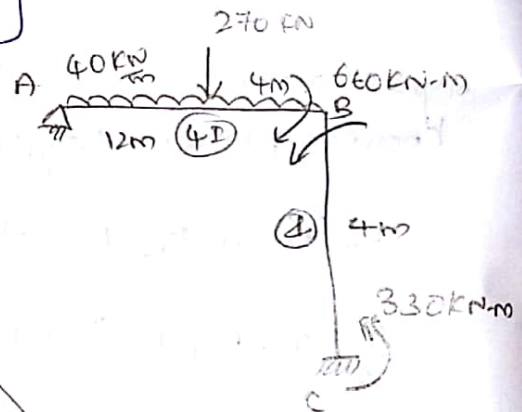 270 KN
A 40 KN/m 4m 660KN-m
B
12m 4I
I 4m
330KN-m
C